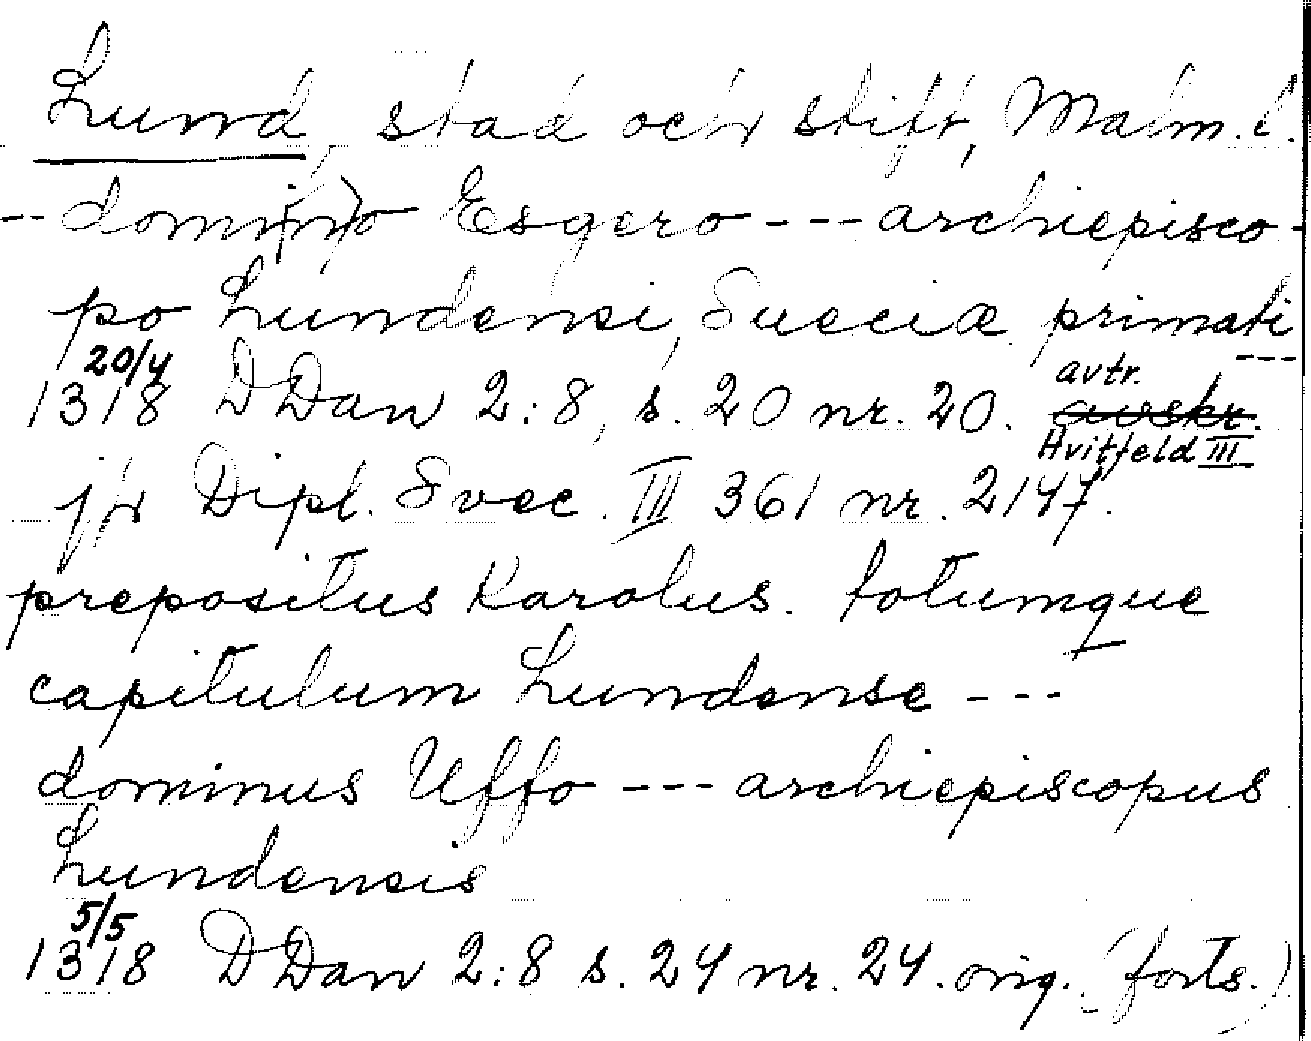 Lund, stad och stift, Malm. l.
-- domi(n)o Esgero --- archiepisco-
po Lundensi, Sueciæ primati ---
20/4
1318 DDan 2:8, s. 20 nr. 20. avtr. avskr.
Hvitfeld III
jfr Dipl. Svec. III 361 nr. 2147.
prepositus Karolus. totumque
capitulum Lundense ---
dominus Uffo --- archiepiscopus
Lundensis
5/5
1318 DDan 2:8 s. 24 nr. 24. orig. (forts.)